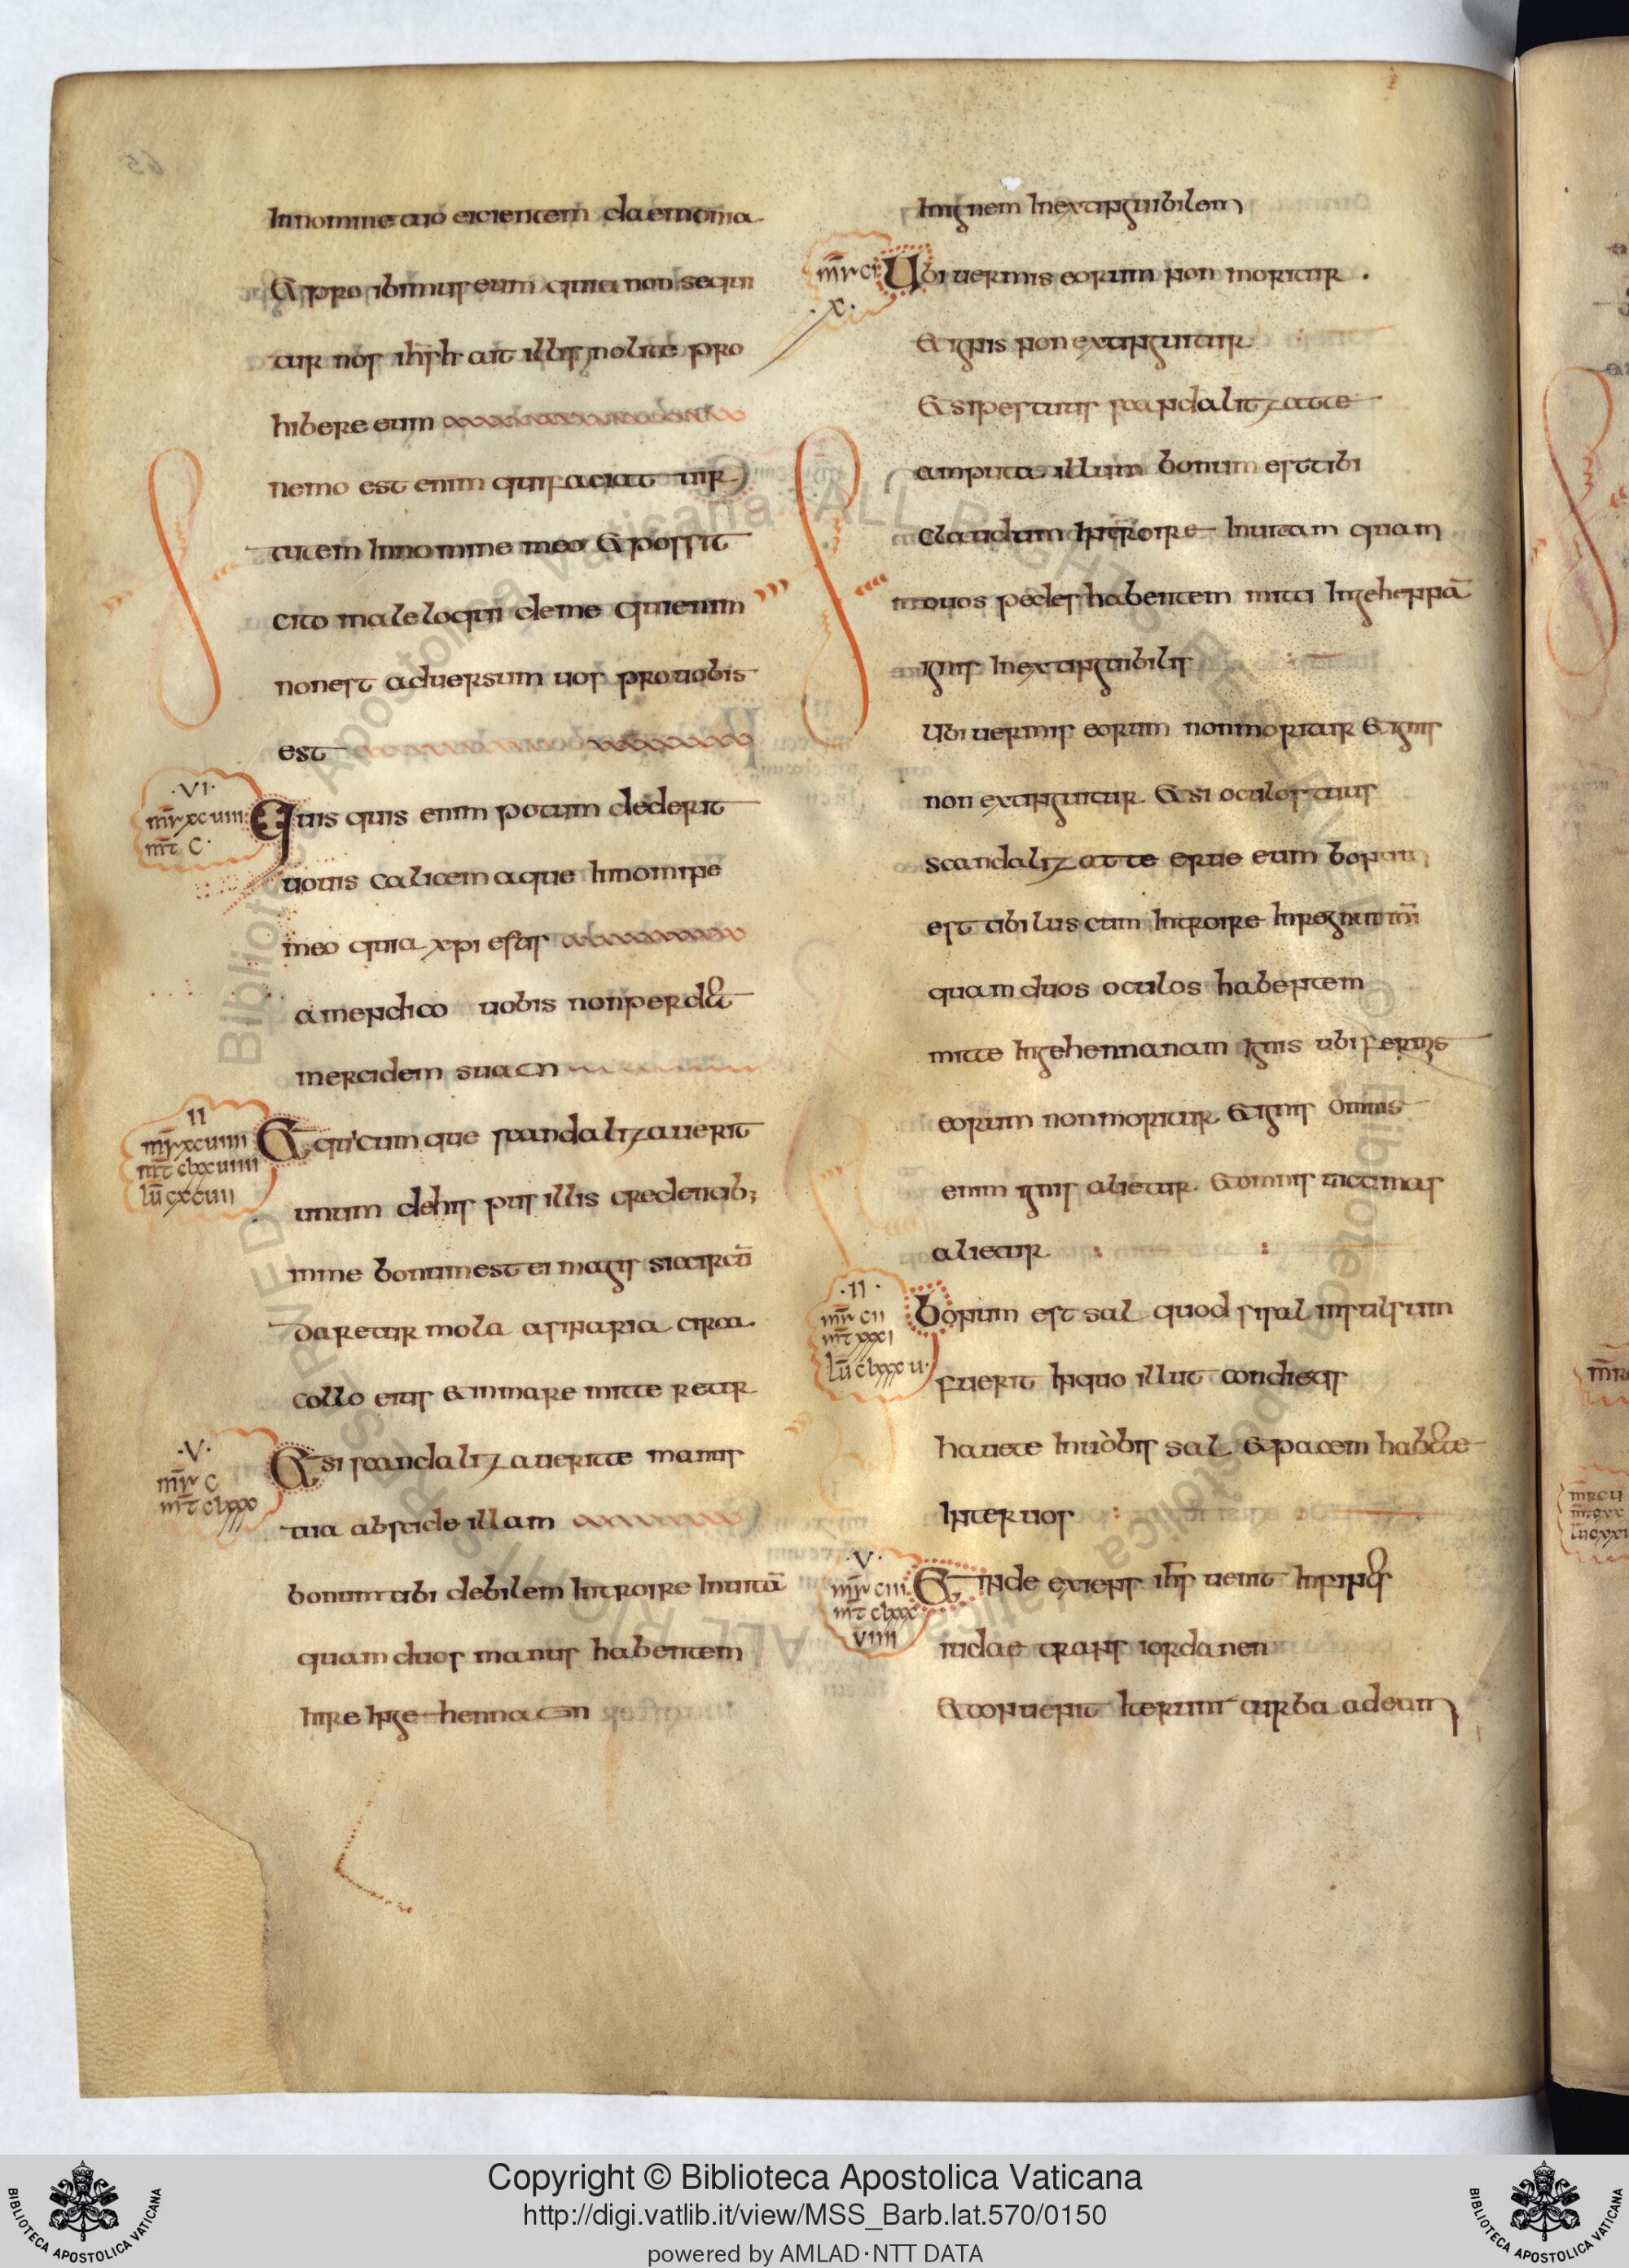 in nomine tuo eicientem daemonia
et proibimus eum quia non sequi
tur nos ihs̄ h ait illis nolite pro
hibere eum
nemo est enim qui faciat uir
tutem in nomine meo et possit
cito male loqui de me qui enim
non est aduersum uos pro uobis
est
·VI·
mr̄ xcuiii
mt̄ c·
Quis quis enim potum dederit
uouis calicem aque in nomine
meo quia xpi estis
amen dico uobis non perdet
mercidem suam
II
mr̄ xcuiiii
mt̄ clxxuiiii
lū cxcuii
Et qui cum que scandalizauerit
unum de his pus illis credentib;
in me bonum est ei magis si circū
daretur mola asinaria circa
collo eius et in mare mitte retur
·V·
mr̄ c
mt̄ clxxx
Et si scandalizauerit te manus
tua abscide illam
bonum tibi debilem introire in uitā
quam duos manus habentem
hire in gehennam
in ignem inextinguibilem
mr̄ ci
·x·
Ubi uermis eorum non moritur .
et ignis non extinguitur
et si pes tuus scandalitzat te
amputa illum bonum est tibi
claudum introire in uitam quam
duos pedes habentem mitti in gehennā
ignis inextinguibilis
ubi uermis eorum non moritur et ignis
non extinguitur et si oculos tuus
scandalizat te erue eum bonum
est tibi luscum introire in regnum
quam duos oculos habentem
mitte in gehennanam ignis ubi
eorum non moritur et ignis omnis
enim ignis alietur et omnis uictimas
alietur
·II·
mr̄ cii
mt̄ xxxi
lū clxxxu·
bonum est sal quod si sal insulsum
fuerit in quo illut condietis
hauete in uobis sal et pacem habete
inter uos
·V·
mr̄ ciii
mt̄ clxxx
VIIII
Et inde exiens ihs̄ uenit in fines
iudae trans iordanen
et conuenit iterum turba ad eum
Copyright © Biblioteca Apostolica Vaticana
http://digi.vatlib.it/view/MSS_Barb.lat.570/0150
powered by AMLAD·NTT DATA